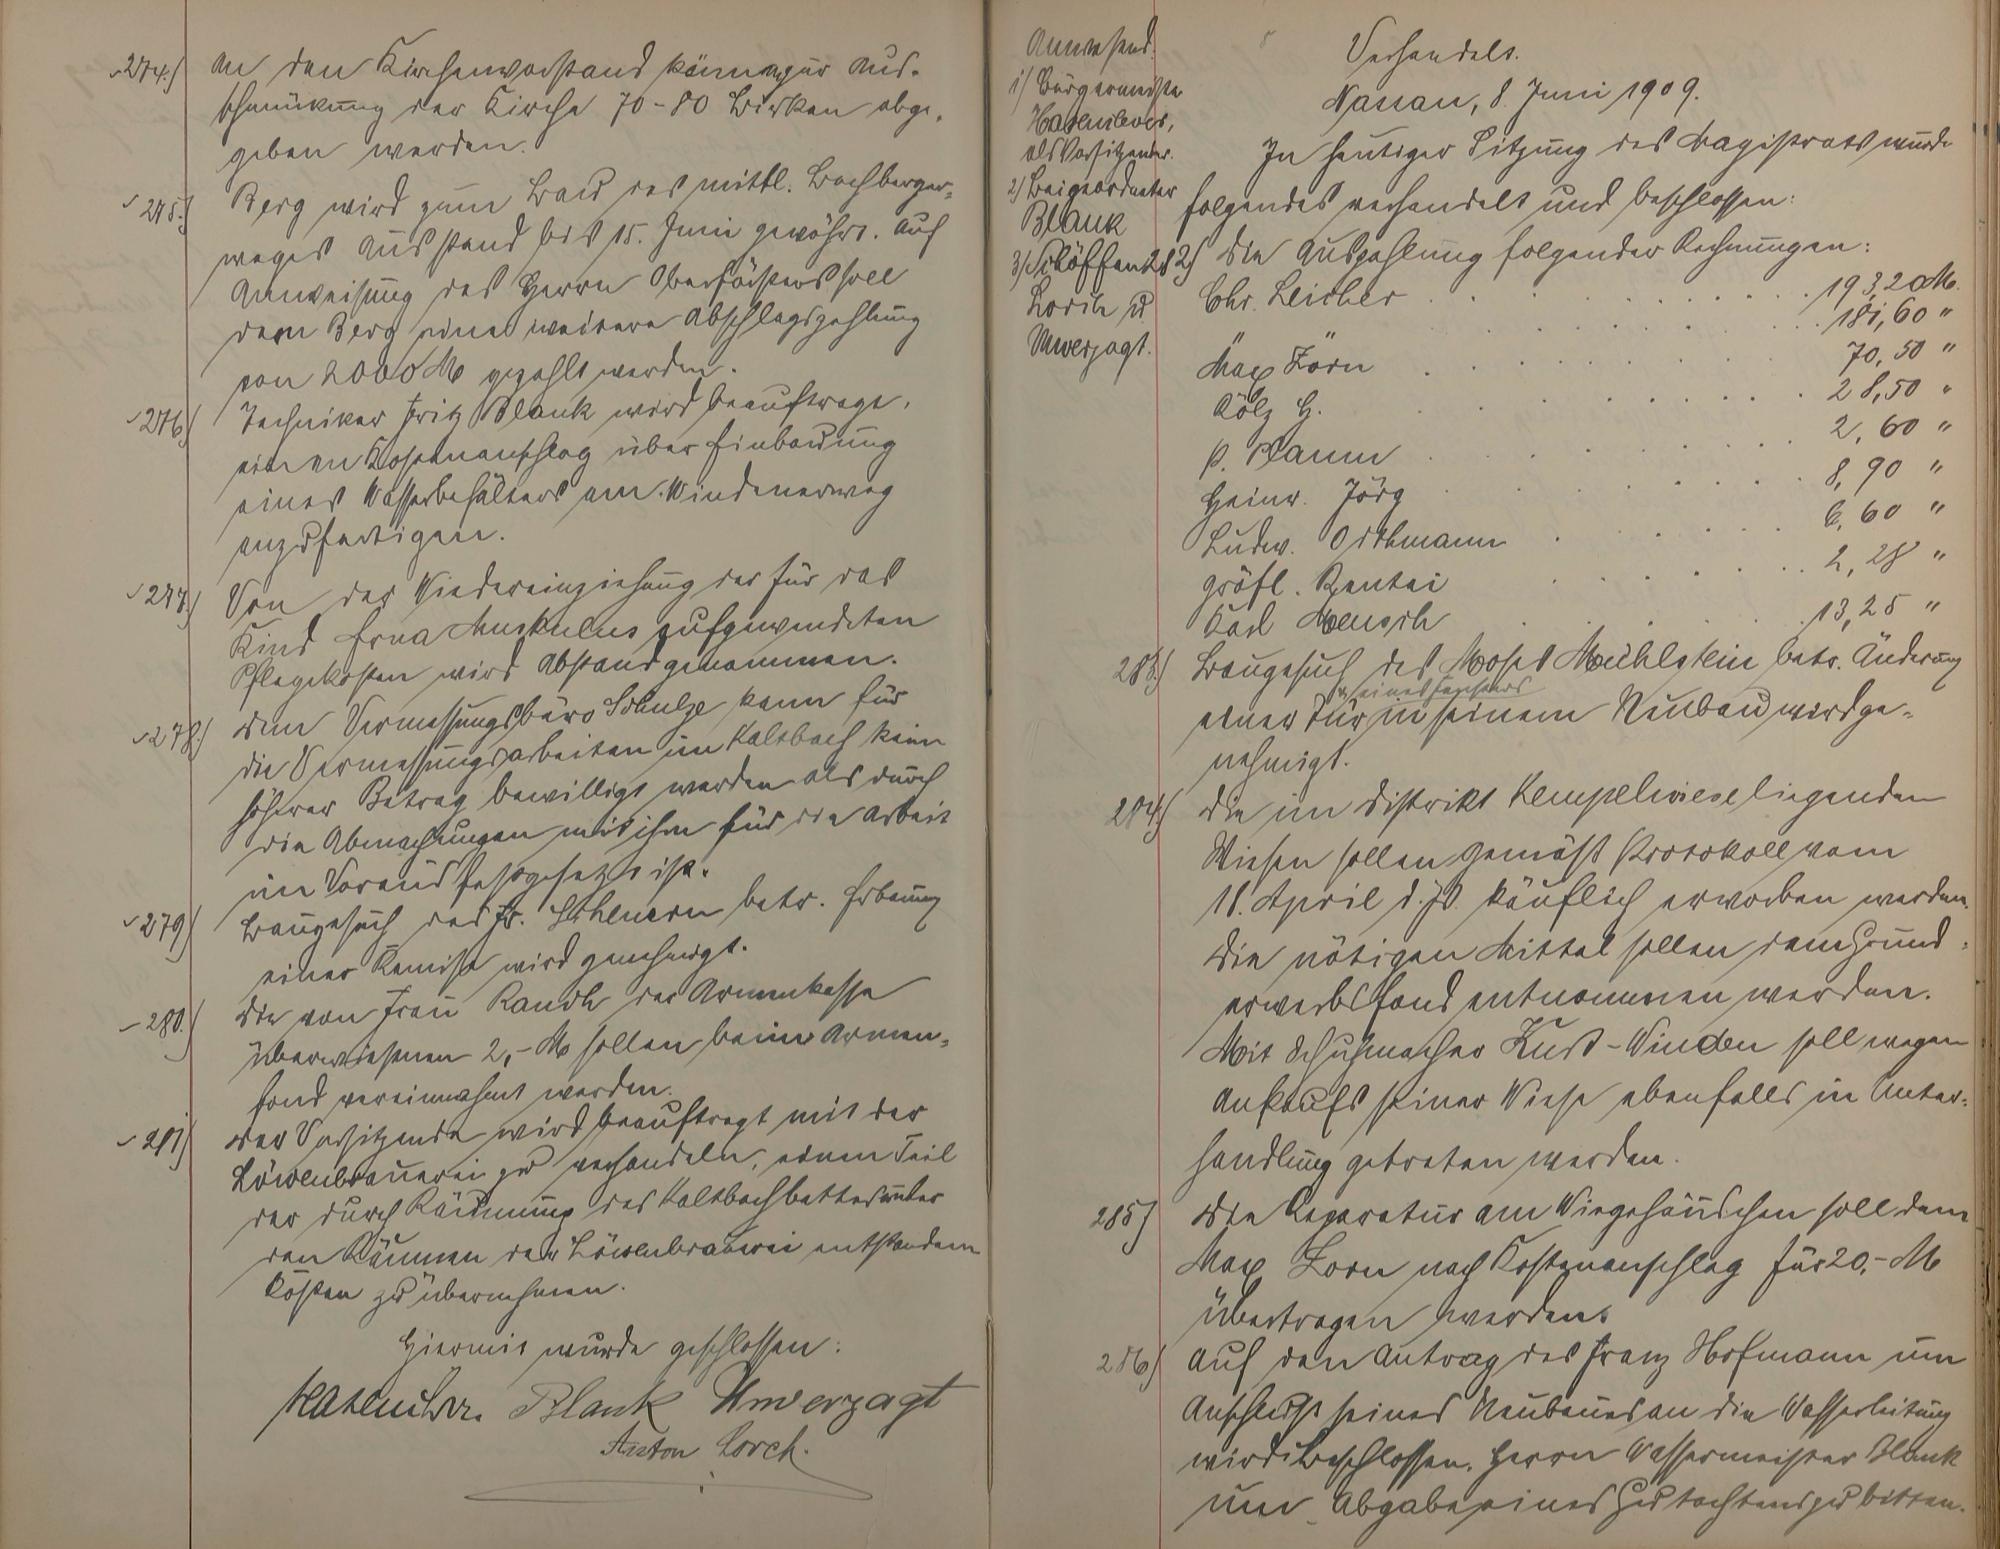 274.) An den Kirchenvorstand können zur Aus-
schmückung der Kirche 70-80 Birken abge-
geben werden.
275.) Berg wird zum Bau des mittl. Bachberger-
weges Ausstand bis 15. Juni gewährt. Auf
Anweisung des Herrn Oberförsters soll
dem Berg eine weitere Abschlagszahlung
von 2000 M gezahlt werden.
276.) Techniker Fritz Blank wird beauftragt,
einen Kostenanschlag über Einbauung
eines Wasserbehälters am Windenerweg
anzufertigen.
277.) Von der Wiedereinziehung der für das
Kind Erna Muskulus aufgewendeten
Pflegekosten wird Abstand genommen.
278.) Dem Vermessungsbüro Schulze kann für
die Vermessungsarbeiten im Kaltbach kein
höherer Betrag bewilligt werden als durch
die Abmachungen mit ihm für die Arbeit
im Voraus festgesetzt ist.
279.) Baugesuch des Fr. betr. Erbauung
einer Remise wird genehmigt.
280.) Die von Frau Rauch der Armenkasse
überwiesenen 2,- M sollen beim Armen-
fond vereinnahmt werden.
281.) Der Vorsitzende wird beauftragt mit der
Löwenbrauerei zu verhandeln, einen Teil
der durch Räumung des Kaltbachbettes unter
den Räumen der Löwenbrauerei entstandenen
Kosten zu übernehmen.
Hiermit wurde geschlossen:
Hasenclever. Blank Unverzagt
Anton Lorch.
Anwesend.
1) Bürgermeister
Hasenclever,
als Vorsitzender.
2) Beigeordneter
Blank
3) Schöffen
Lorch u.
Unverzagt.
Verhandelt.
Nassau, 8. Juni 1909.
In heutiger Sitzung des Magistrats wurde
folgendes verhandelt und beschlossen:
282) Die Auszahlung folgender Rechnungen:
Chr. Leicher 193,20 M.
181,60 "
Max Zorn 70,50 "
Kölz H. 28,50 "
P. 2,60 "
Heinr. Jörg 8,90 "
Ludw. Orthmann 6,60 "
Gräfl. Rentei 2,28 "
Karl Mensch 13,25 "
283.) Baugesuch des Moses Mühlstein betr. Änderung
u. eines Fensters
einer Tür in seinem Neubau wird ge-
nehmigt.
284) Die im Distrikt Kempelwiese liegenden
Wiesen sollen gemäß Protokoll vom
18. April d. Js. käuflich erworben werden.
Die nötigen Mittel sollen dem Grund-
erwerbsfond entnommen werden.
Mit Schuhmacher Kurt-Winden soll wegen
Ankaufs seiner Wiese ebenfalls in Unter-
handlung getreten werden.
285) Die Reparatur am Wiegehäuschen soll dem
Max Zorn nach Kostenanschlag für 20,- M
übertragen werden.
286) Auf den Antrag des Franz Hofmann um
Anschluß seines Neubaues an die Wasserleitung
wird beschlossen, Herrn Wassermeister Blank
um Abgabe eines Gutachtens zu bitten.